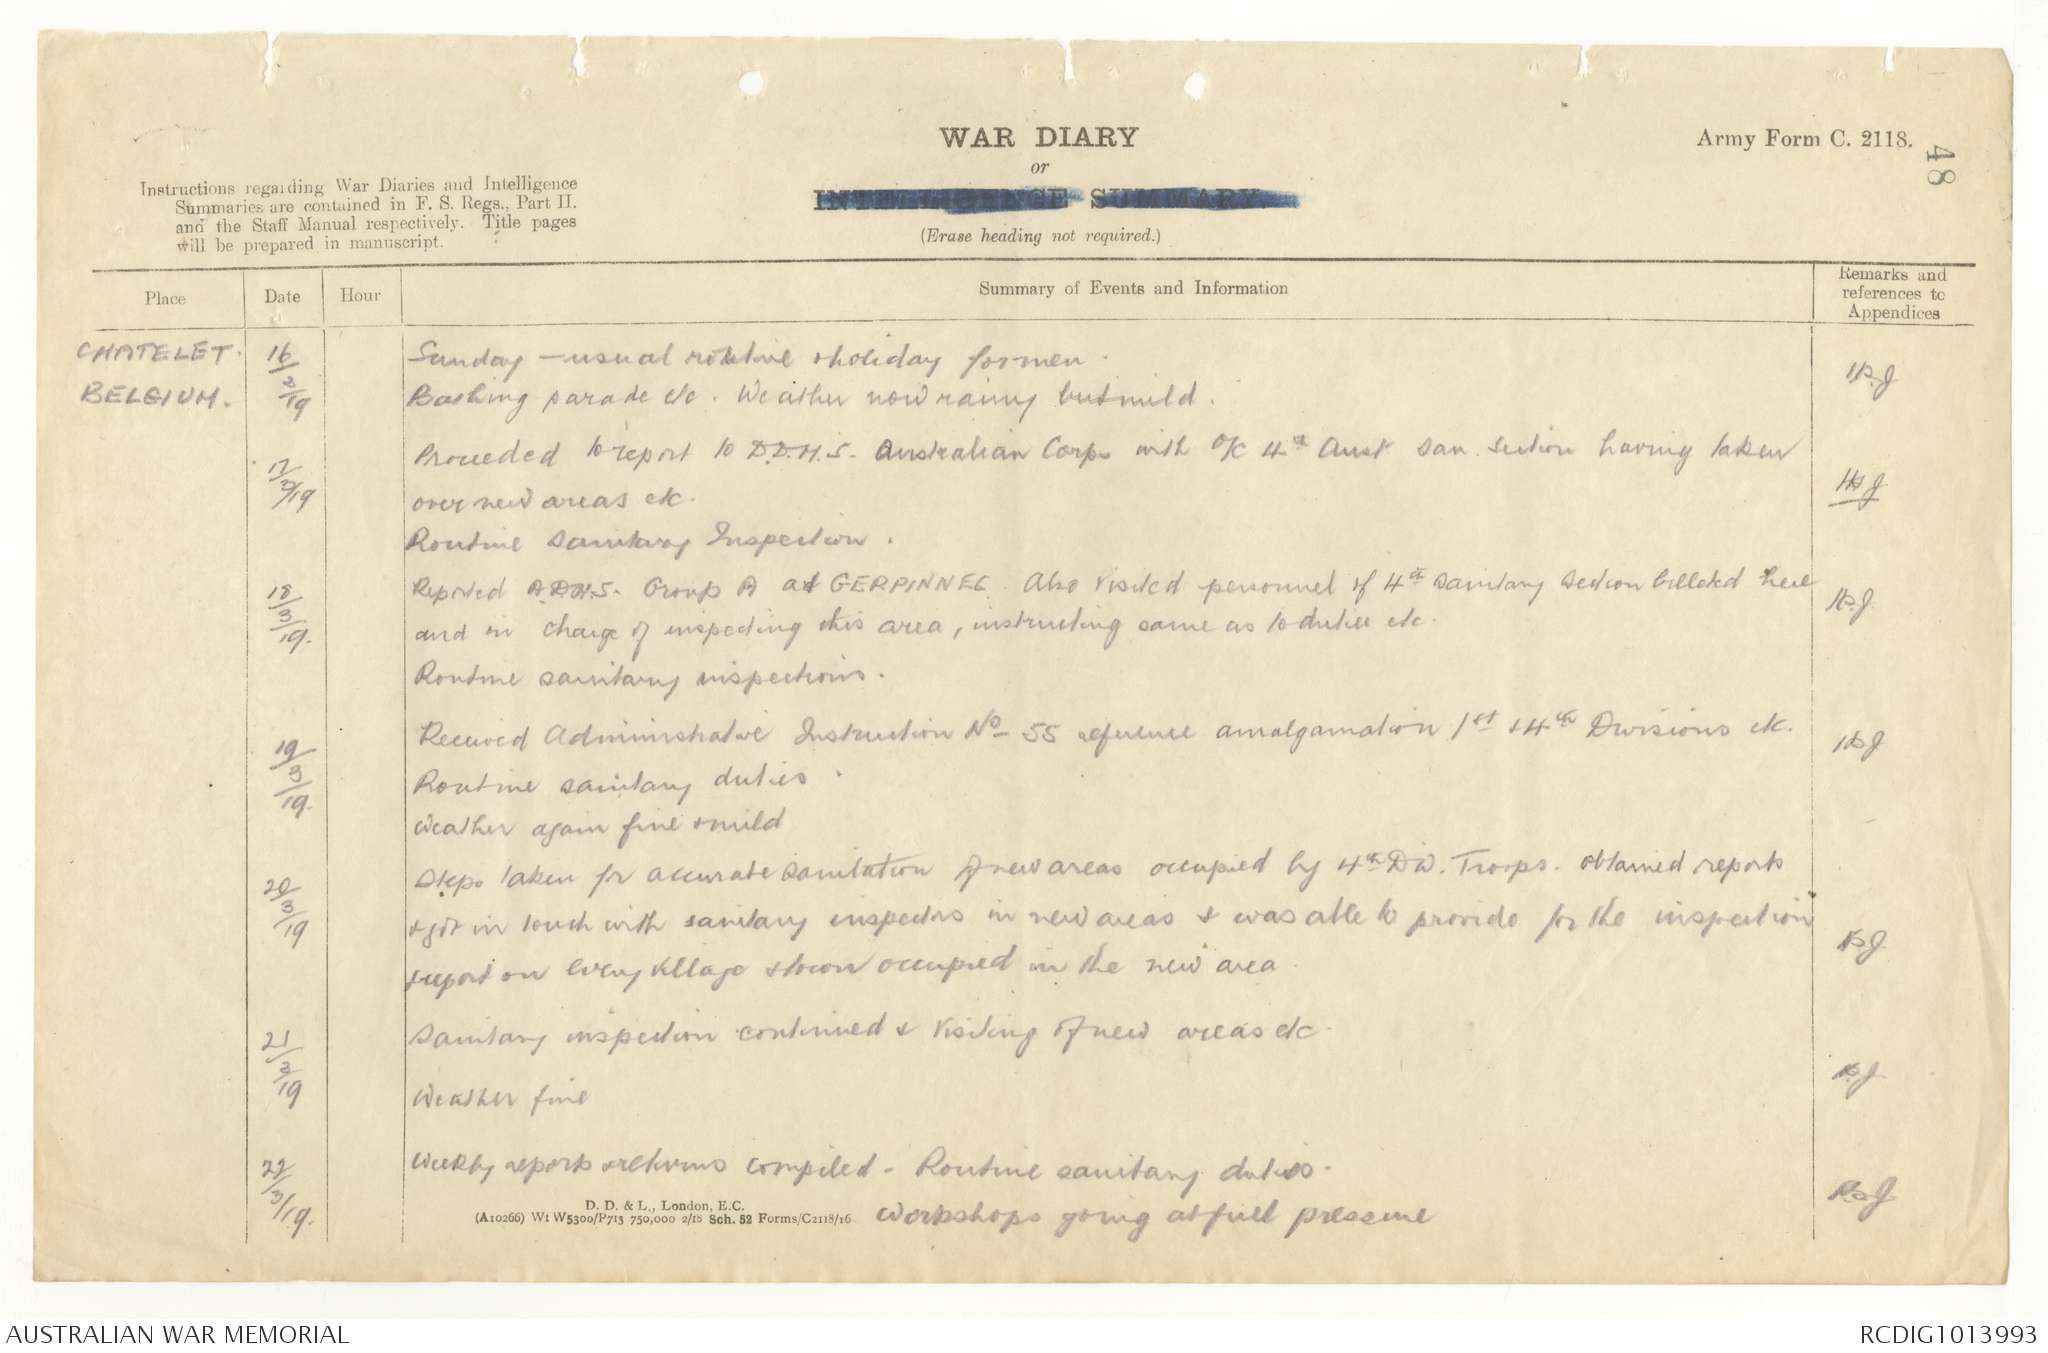 WAR DIARY
or
INTELLIGENCE SUMMARY.
(Erase heading not required.)
Army Form C. 2118.
48
Instructions regarding War Diaries and Intelligence
Summaries are contained in F. S. Regs., Part II.
and the Staff Manual respectively. Title pages
will be prepared in manuscript.
Place
Date
Hour
Summary of Events and Information
Remarks and
references to
Appendices
CHATELET.
BELGIUM.
16/3/19
Sunday - usual routine & holiday for men.
Bathing parade etc. Weather now rainy but mild.
17/3/19
Proceeded to report to D.D.M.S. Australian Corps with O/C 4th Aust San. Section having taken
over new areas etc.
Routine Sanitary Inspection.
18/3/19.
Reported A.D.M.S. Group A at GERPINNES. Also visited personnel of 4th Sanitary Section billeted here
and in charge of inspecting this area, instructing same as to duties etc.
Routine sanitary inspections.
19/3/19.
Received Administrative Instruction No 55 reference amalgamation 1st & 4th Divisions etc.
Routine sanitary duties.
Weather again fine & mild
20/3/19
Steps taken for accurate sanitation of new areas occupied by 4th Div. Troops. Obtained reports
& got in touch with sanitary inspectors in new areas & was able to provide for the inspection
& report on every village & town occupied in the new area.
21/3/19
Sanitary inspection continued & visiting of new areas etc.
Weather fine
22/3/19.
Weekly reports & returns compiled - Routine sanitary duties.
Workshops going at full pressure
D. D. & L., London, E.C.
(A10266) Wt W5300/P713 750,000 2/18 Sch. 52 Forms/C2118/16
AUSTRALIAN WAR MEMORIAL
RCDIG1013993